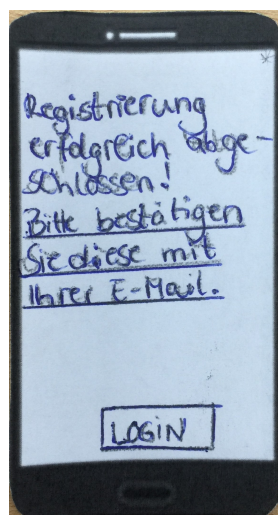 Registrierung
erfolgreich abge-
schlossen!
Bitte bestätigen
Sie diese mit
Ihrer E-Mail.
LOGIN